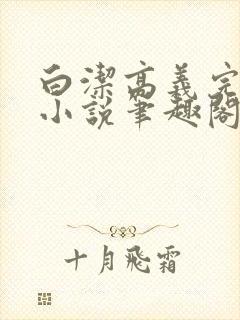 白潔高義完
小說筆趣閣
十月飛霜